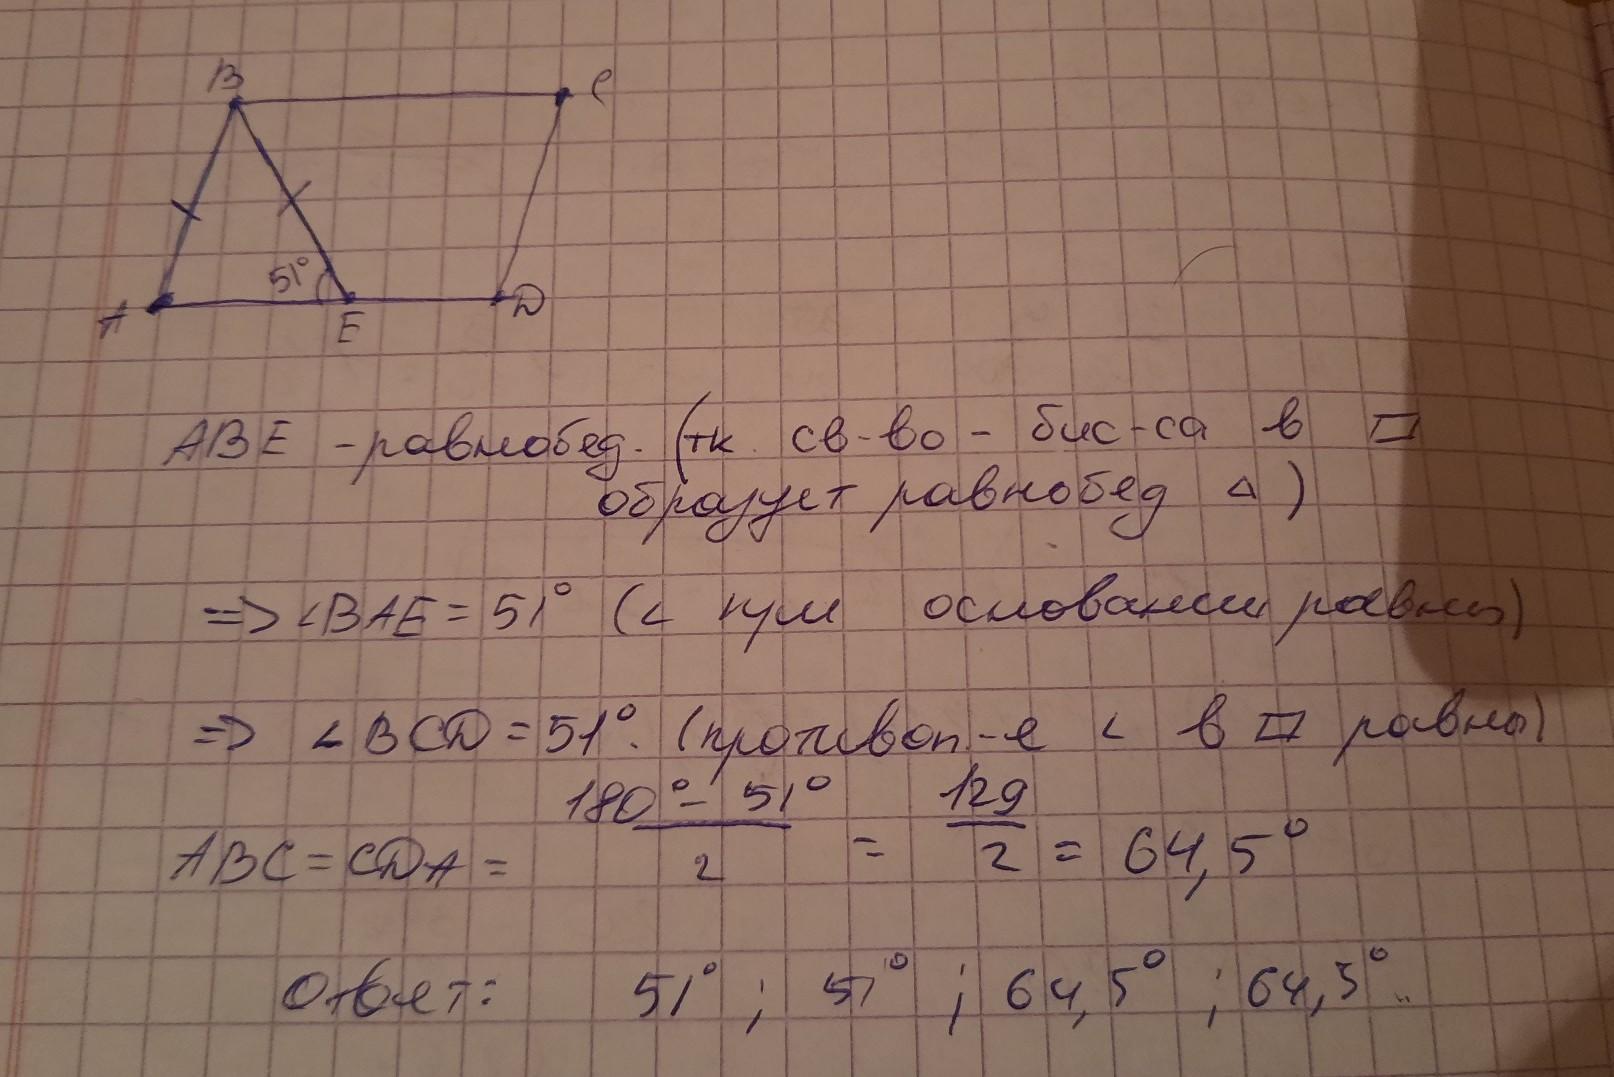 B C
51°
A E D
ABE - равнобед. (тк. св-во - бис-са в ▱
образует равнобед △)
=> ∠BAE = 51° (∠ при основании равны)
=> ∠BCD = 51°. (противоп-е ∠ в ▱ равны)
ABC = CDA = (180° - 51°)/2 = 129/2 = 64,5°
Ответ: 51° ; 51° ; 64,5° ; 64,5°.